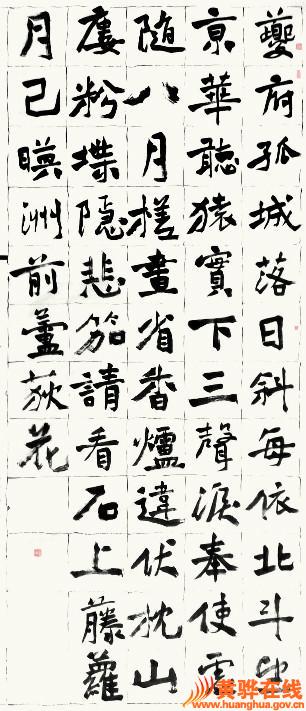 夔府孤城落日斜每依北斗望
京華聽猿實下三聲淚奉使虛
随八月槎畫省香爐違伏枕山
廔粉堞隱悲笳請看石上藤蘿
月已暎洲前蘆荻花
黄骅在线
www.huanghua.gov.cn